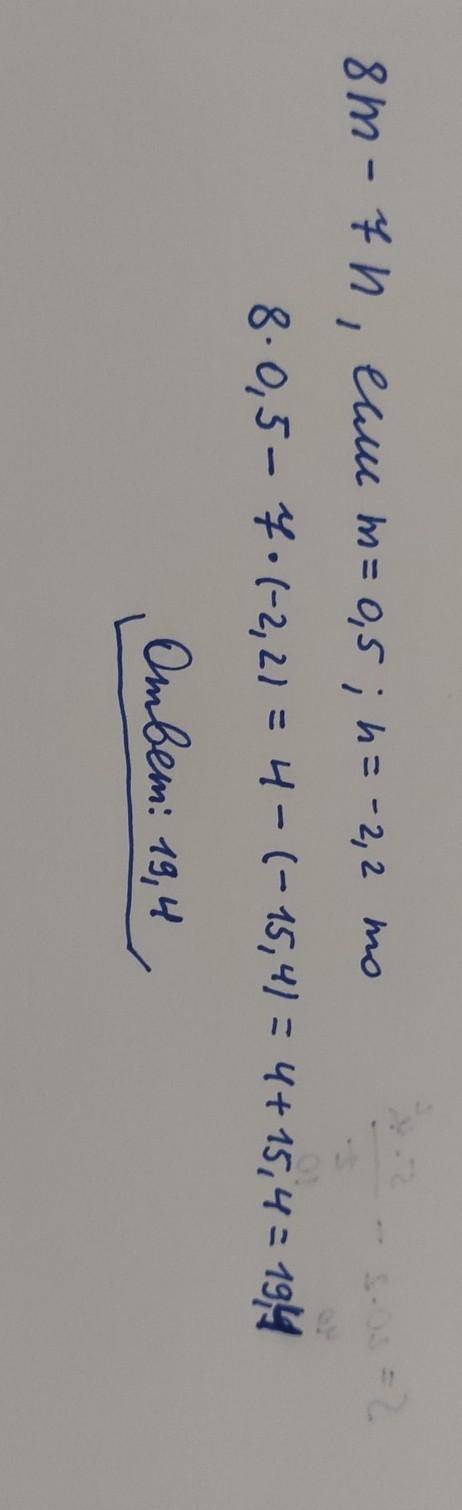 8m - 7n, если m = 0,5; n = -2,2 то
8·0,5 - 7·(-2,2) = 4 - (-15,4) = 4 + 15,4 = 19,4
Ответ: 19,4